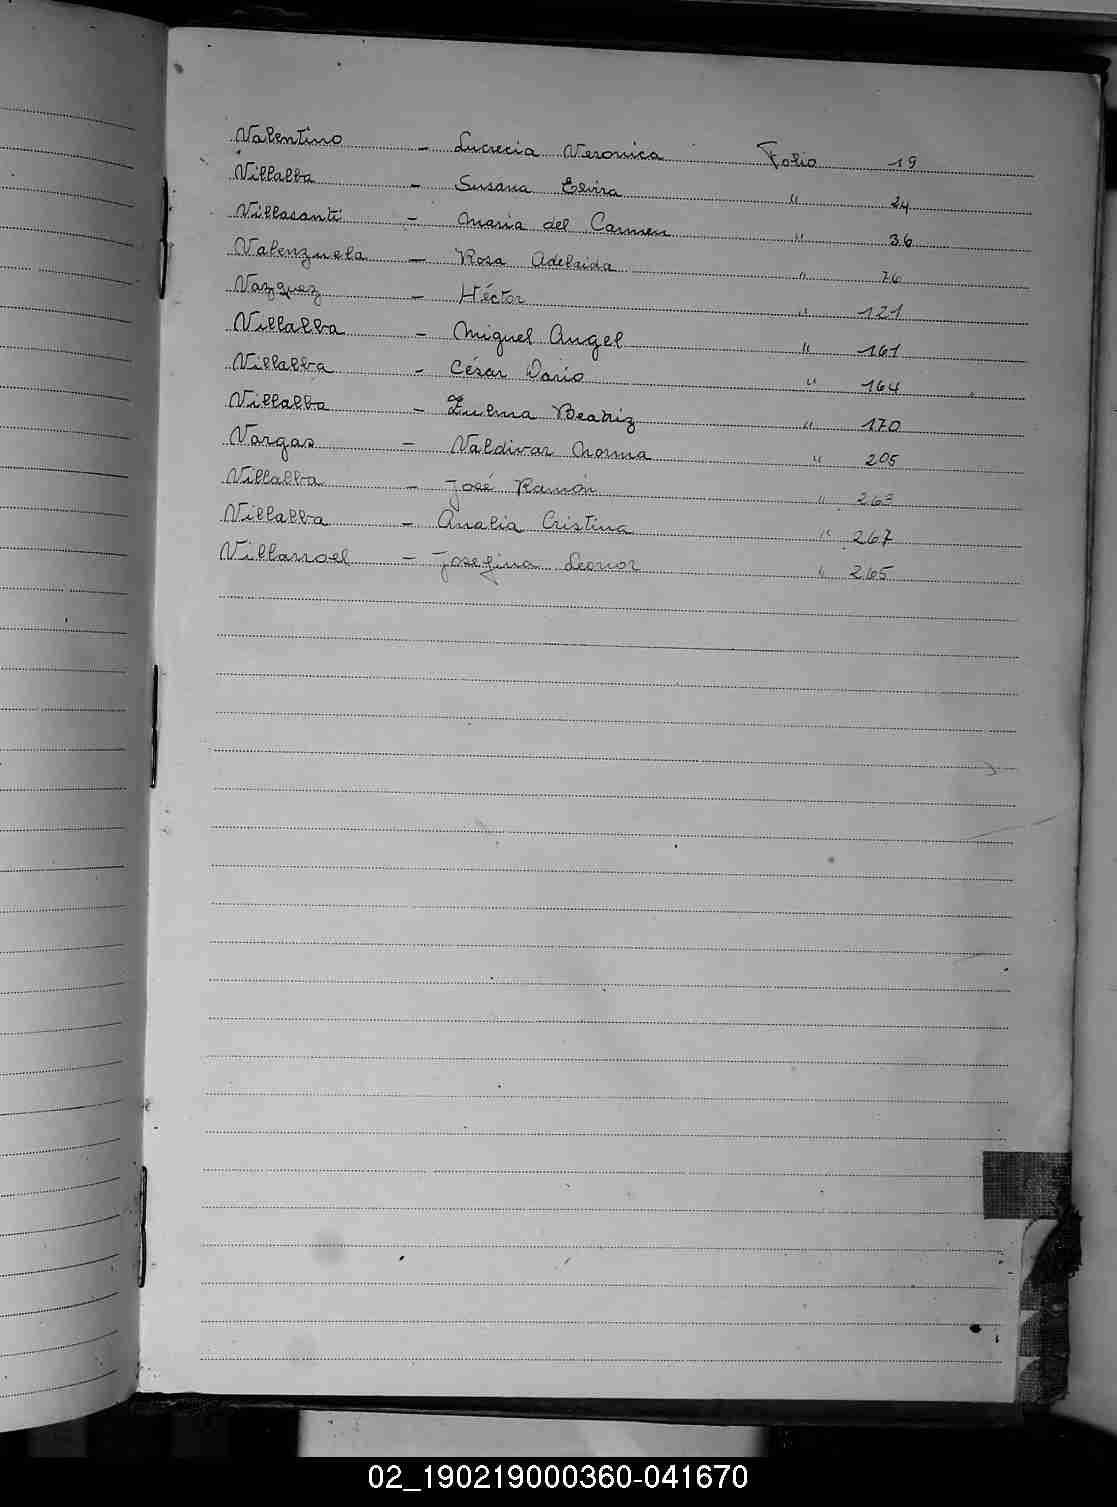 Valentino - Lucrecia Veronica Folio 19
Villalba - Susana Elvira " 24
Villasanti - Maria del Carmen " 36
Valenzuela - Rosa Adelaida " 76
Vazquez - Héctor " 121
Villalba - Miguel Angel " 161
Villalba - César Dario " 164
Villalba - Zulma Beatriz " 170
Vargas - Valdivar Norma " 205
Villalba - José Ramón " 263
Villalba - Analia Cristina " 267
Villarroel - Josefina Leonor " 265
02_190219000360-041670